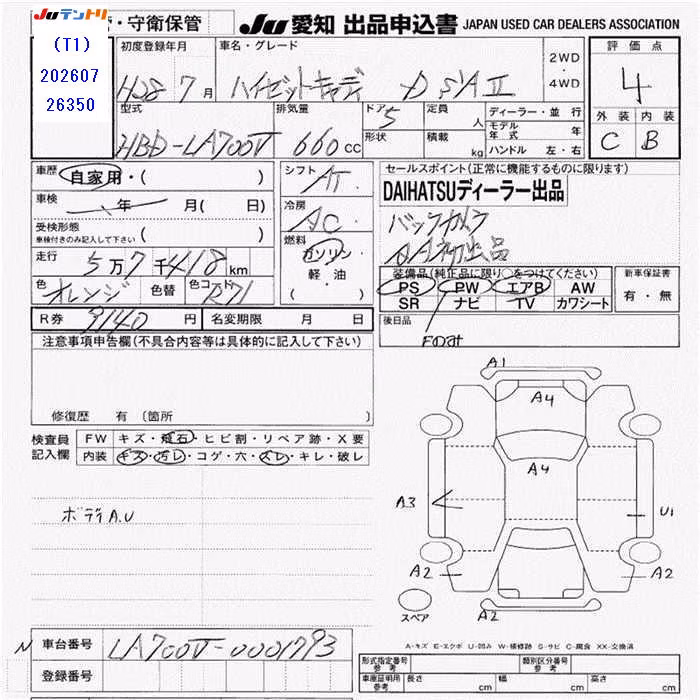 Juテントリ
・守衛保管
JU 愛知 出品申込書 JAPAN USED CAR DEALERS ASSOCIATION
(T1)
202607
26350
初度登録年月 車名・グレード 2WD・4WD 評価点
H28 7月 ハイゼットキャディ D SAⅡ 4
型式 排気量 ドア 定員 ディーラー・並行 外装 内装
HBD-LA700V 660cc 5 人 モデル年式 年 C B
形状 積載 kg ハンドル 左・右
車歴 自家用・( ) シフト AT セールスポイント(正常に機能するものに限ります)
車検 年 月( 日) 冷房 AC DAIHATSUディーラー出品
受検形態 ( ) バックカメラ
車検付きのみ記入して下さい 燃料 AA初出品
走行 5万7千418km ガソリン・軽油 ( ) 装備品(純正品に限り○をつけてください) 新車保証書
PS PW エアB AW 有・無
色 オレンジ 色替 色コード R71 SR ナビ TV カワシート
R券 9140円 名変期限 月 日 後日品
注意事項申告欄(不具合内容等は具体的に記入して下さい)
修復歴 有 〔箇所 〕
検査員記入欄 FW キズ・飛石・ヒビ割・リペア跡・X要
内装 キズ・汚レ・コゲ・穴・スレ・キレ・破レ
ボディA.U
A1
A4
A4
A3 U1
A2 A2
スペア A2
A-キズ E-エクボ U-凹み W-補修跡 S-サビ C-腐食 XX-交換済
N 車台番号 LA700V-0001793
登録番号
形式指定番号 参考 類別区分番号 参考
車庫証明用 参考 長さ cm 幅 cm 高さ cm